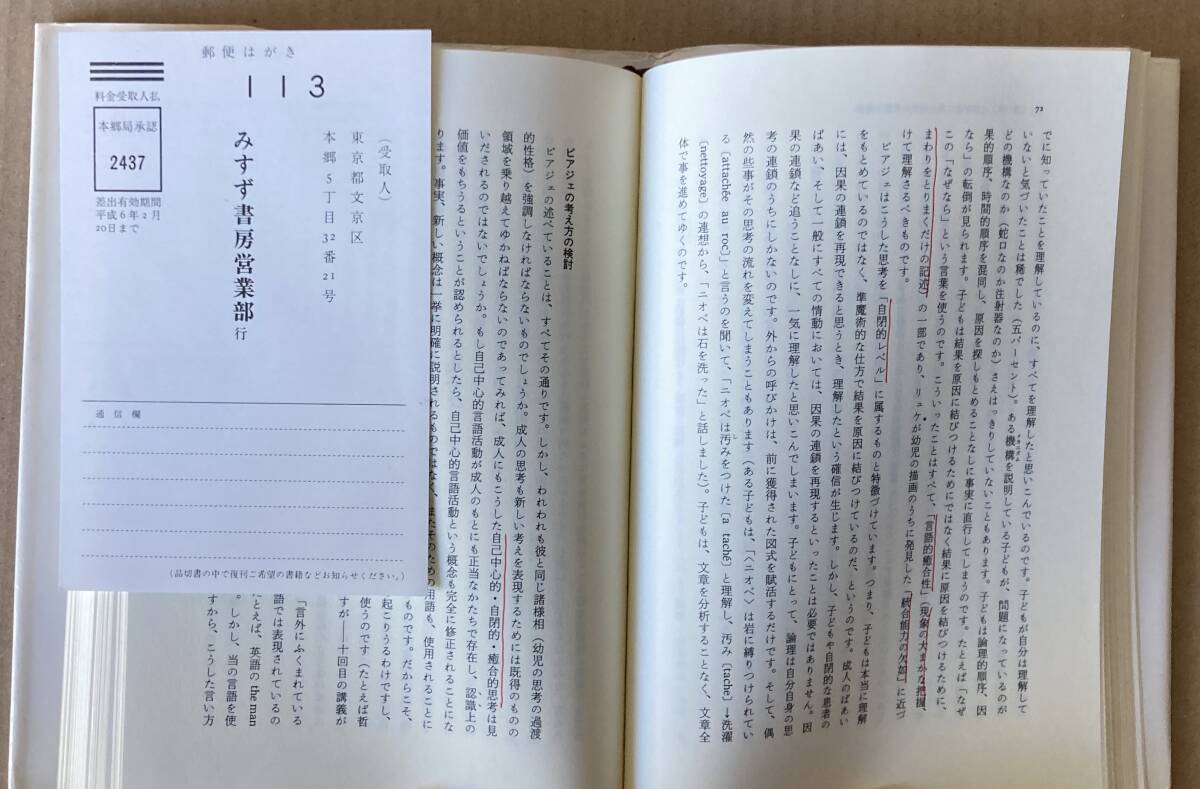 72
でに知っていたことを理解しているのに、すべてを理解したと思いこんでいるのです。子どもが自分は理解して
いないと気づいたことは稀でした（五パーセント）。ある機構を説明している子どもが、問題になっているのが
どの機構なのか（蛇口なのか注射器なのか）さえはっきりしていないこともあります。子どもは論理的順序、因
果的順序、時間的順序を混同し、原因を探しもとめることなしに事実に直行してしまうのです。たとえば「なぜ
なら」の転倒が見られます。子どもは結果を原因に結びつけるためにではなく結果に原因を結びつけるために、
この「なぜなら」という言葉を使うのです。こういったことはすべて、「言語的癒合性」（現象の大まかな把握、
まわりをとりまくだけの記述）の一部であり、リュケが幼児の描画のうちに発見した「統合能力の欠如」に近づ
けて理解さるべきものです。
ピアジェはこうした思考を「自閉的レベル」に属するものと特徴づけています。つまり、子どもは本当に理解
をもとめているのではなく、準魔術的な仕方で結果を原因に結びつけているのだ、というのです。成人のばあい
には、因果の連鎖を再現できると思うとき、理解したという確信が生じます。しかし、子どもや自閉的な患者の
ばあい、そして一般にすべての情動においては、因果の連鎖を再現するといったことは必要ではありません。因
果の連鎖など追うことなしに、一気に理解したと思いこんでしまいます。子どもにとって、論理は自分自身の思
考の連鎖のうちにしかないのです。外からの呼びかけは、前に獲得された図式を賦活するだけです。そして、偶
然の些事がその思考の流れを変えてしまうこともあります（ある子どもは、「〈ニオベ〉は岩に縛りつけられてい
る〔attachée au roc〕」と言うのを聞いて、「ニオベは汚みをつけた〔a taché〕と理解し、汚み〔tache〕→洗濯
〔nettoyage〕の連想から、「ニオベは石を洗った」と話しました）。子どもは、文章を分析することなく、文章全
体で事を進めてゆくのです。
ピアジェの考え方の検討
ピアジェの述べていることは、すべてその通りです。しかし、われわれも彼と同じ諸様相（幼児の思考の過渡
的性格）を強調しなければならないものでしょうか。成人の思考も新しい考えを表現するためには既得のものの
領域を乗り越えてゆかねばならないのであってみれば、成人にもこうした自己中心的・自閉的・癒合的思考は見
いだされるのではないでしょうか。もし自己中心的言語活動が成人のもとにも正当なかたちで存在し、認識上の
価値をもちうるということが認められるとしたら、自己中心的言語活動という概念も完全に修正されることにな
ります。事実、新しい概念は一挙に明確に説明されるものではなく、またそのための用語も、使用されることに
ものです。だからこそ、
起こりうるわけですし、
使うのです（たとえば哲
すが――十回目の講義が
「言外にふくまれている
語では表現されているの
たとえば、英語の the man
。しかし、当の言語を使
すから、こうした言い方
郵便はがき
113
料金受取人払
本郷局承認
2437
差出有効期間
平成6年2月
20日まで
（受取人）
東京都文京区
本郷5丁目32番21号
みすず書房営業部 行
通信欄
（品切書の中で復刊ご希望の書籍などお知らせください。）